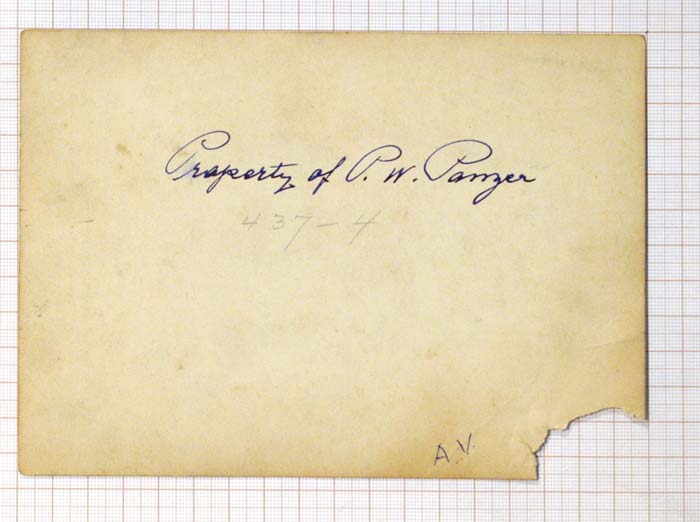 Property of P. W. Panzer
437-4
A.V.